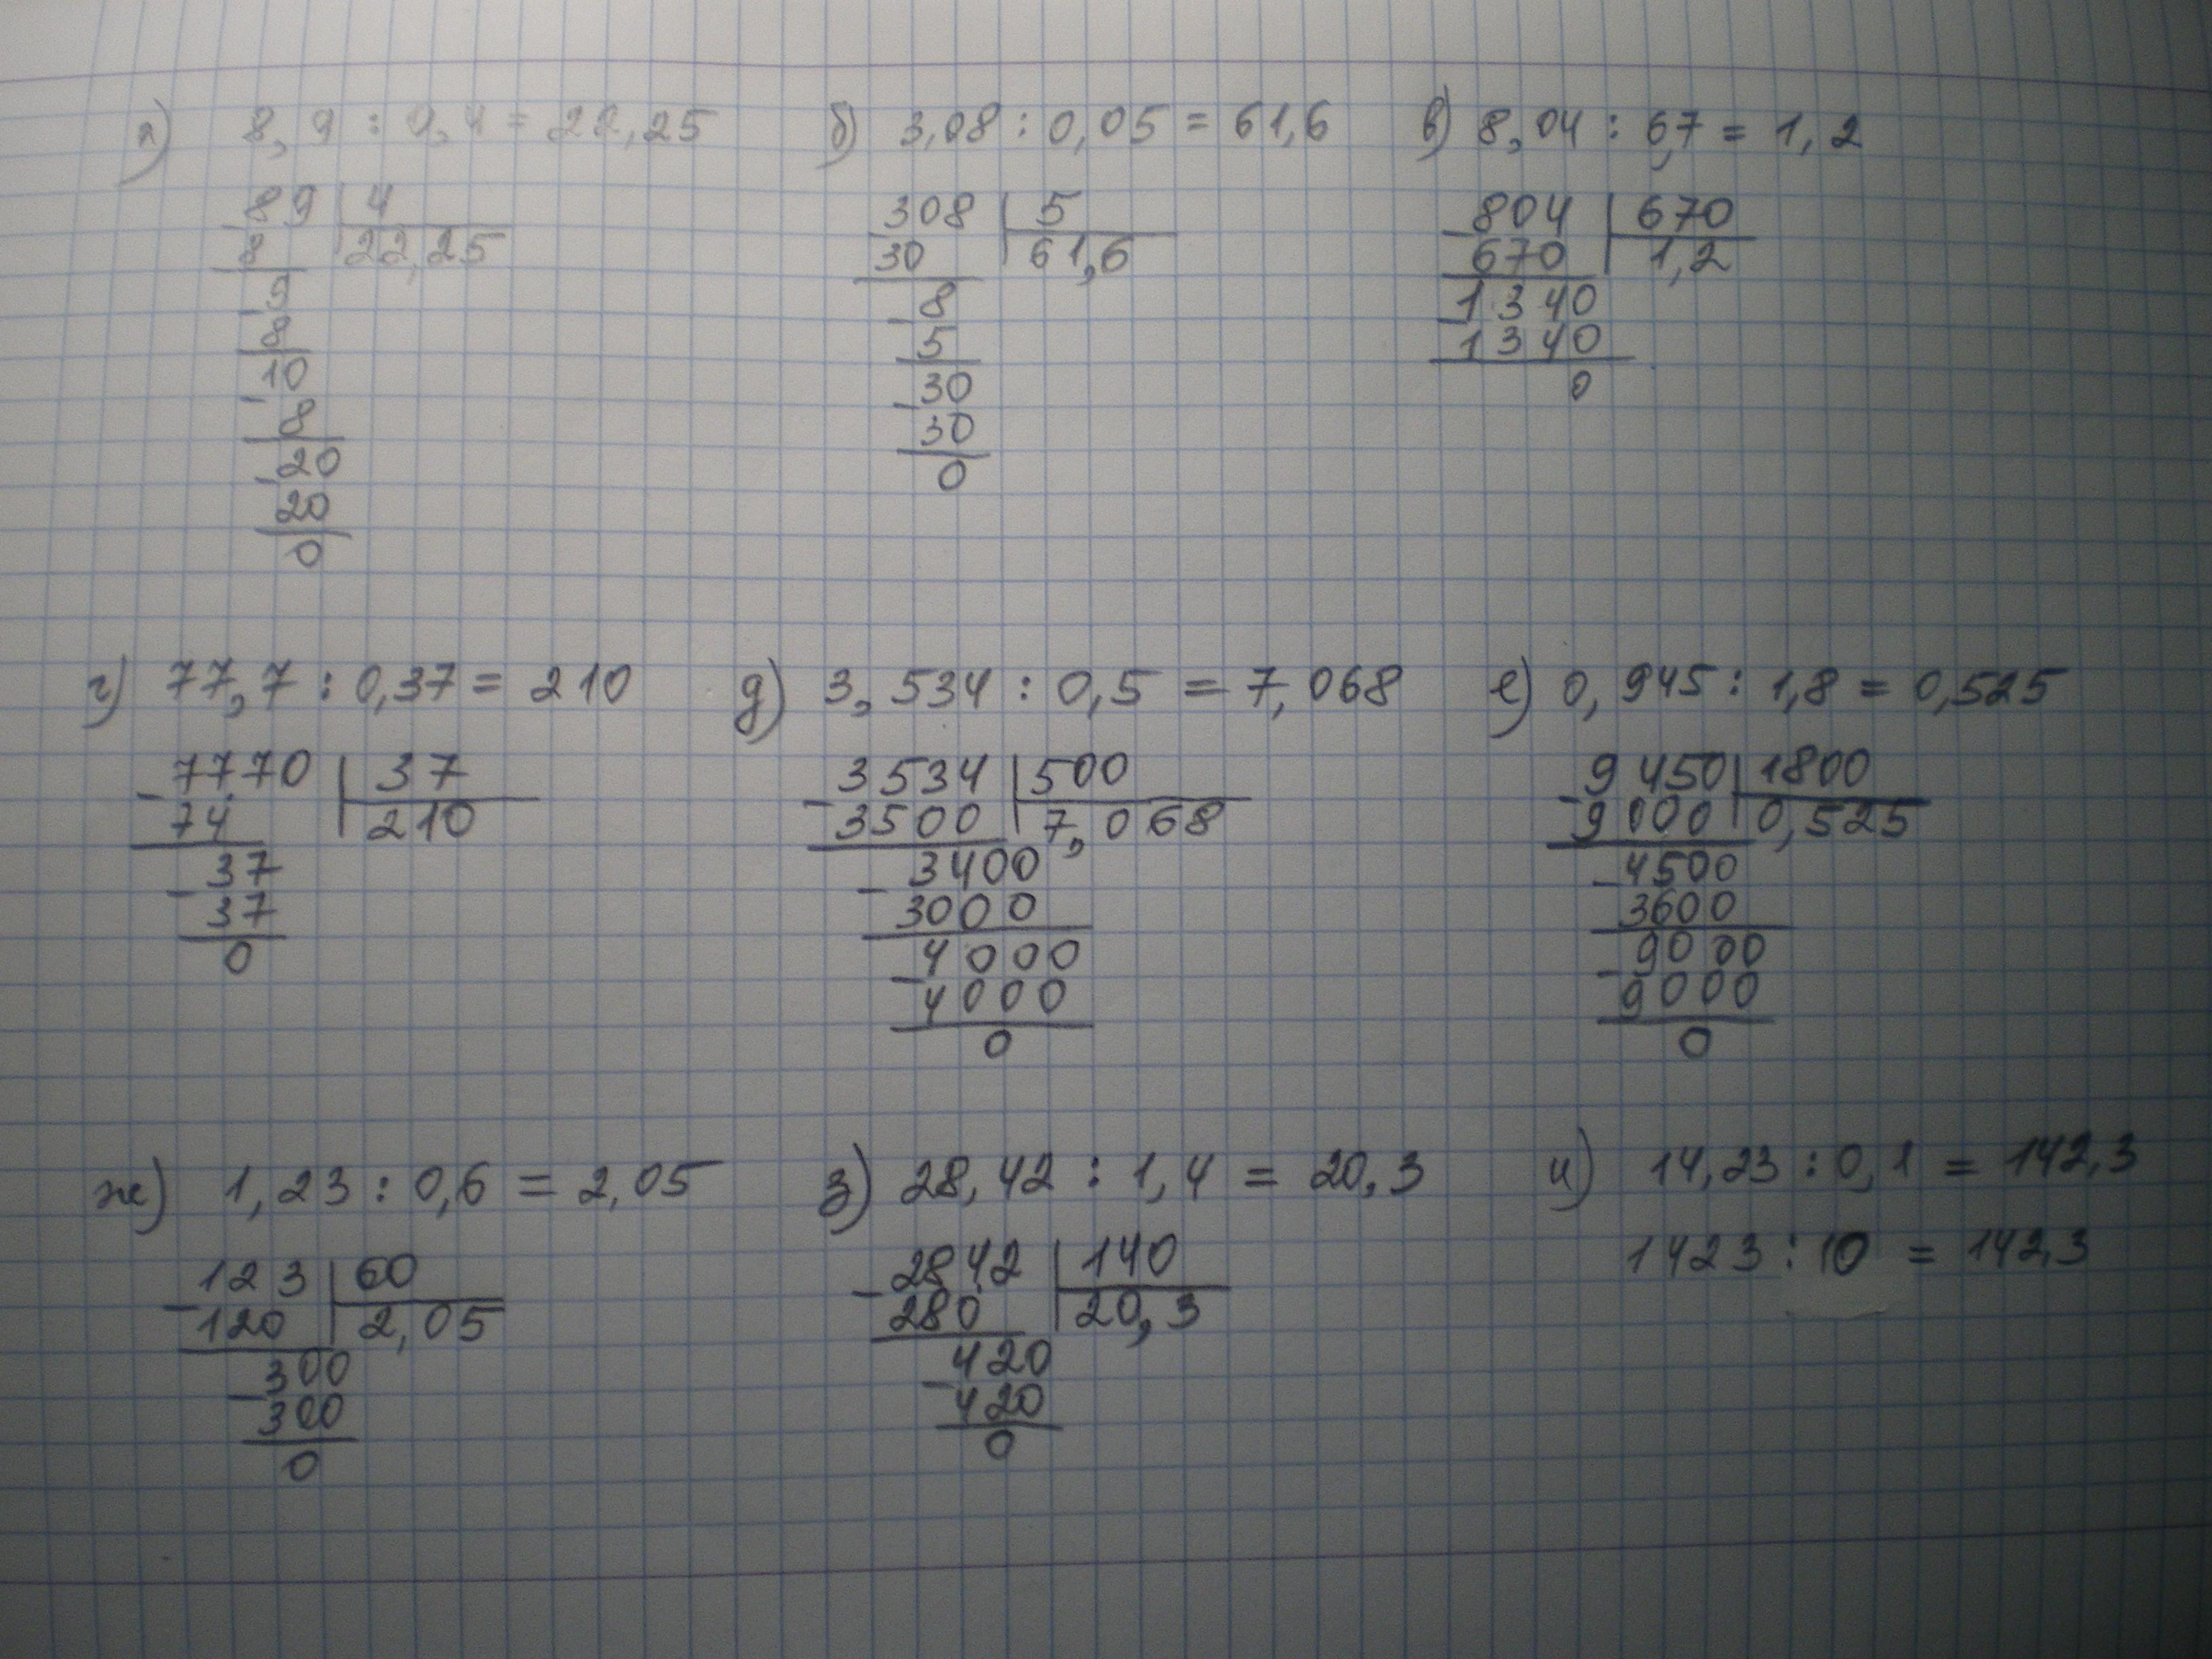 а) 8,9 : 0,4 = 22,25
89 | 4
8 | 22,25
9
8
10
8
20
20
0
б) 3,08 : 0,05 = 61,6
308 | 5
30 | 61,6
8
5
30
30
0
в) 8,04 : 6,7 = 1,2
804 | 670
670 | 1,2
1340
1340
0
г) 77,7 : 0,37 = 210
7770 | 37
74 | 210
37
37
0
д) 3,534 : 0,5 = 7,068
3534 | 500
3500 | 7,068
3400
3000
4000
4000
0
е) 0,945 : 1,8 = 0,525
9450 | 1800
9000 | 0,525
4500
3600
9000
9000
0
ж) 1,23 : 0,6 = 2,05
123 | 60
120 | 2,05
300
300
0
з) 28,42 : 1,4 = 20,3
2842 | 140
280 | 20,3
420
420
0
и) 14,23 : 0,1 = 142,3
1423 : 10 = 142,3